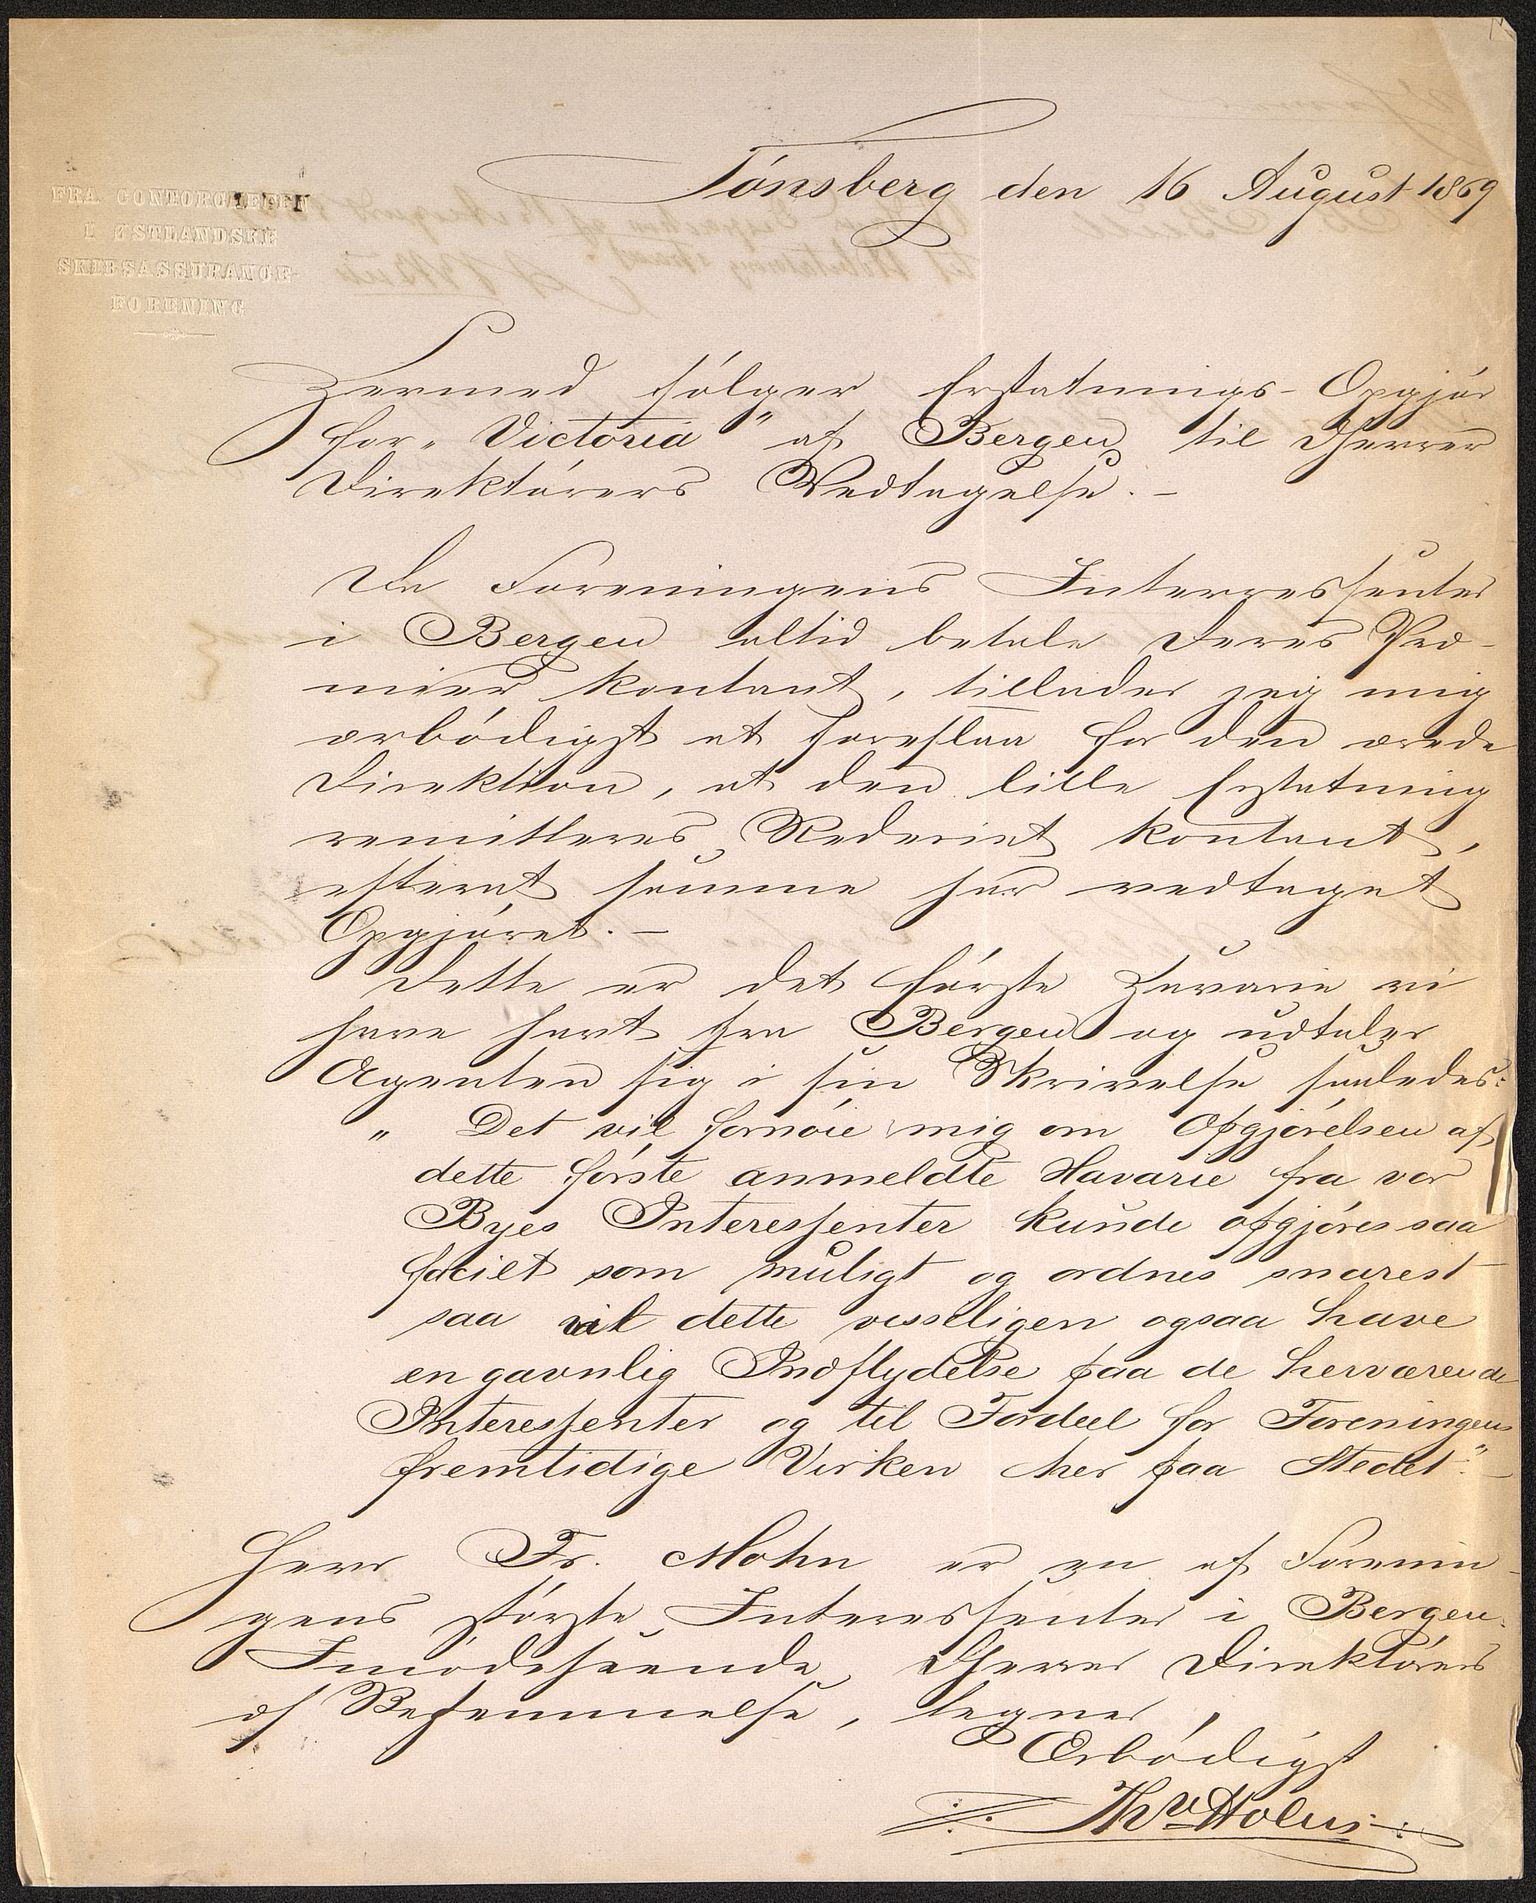 FRA CONTORCHEFEN
I ØSTLANDSKE
SKIBSASSURANCE-
FORENING
Tönsberg den 16 August 1869
Hermed fölger Erstatnings-Opgjör
for „Victoria" af Bergen til Herrer
Direktörers Vedtagelse. –
Da Foreningens Interressenter
i Bergen altid betale deres Præ-
mier kontant, tillader jeg mig
ærbödigst at foreslaa for den ærede
Direktion, at den lille Erstatning
remitteres Rederiet kontant,
efterat samme har vedtaget
Opgjöret. –
Dette er det förste Havarie vi
have havt fra Bergen og udtaler
Agenten sig i sin Skrivelse saaledes:
„Det vil fornöie mig om Opgjörelsen af
dette förste anmeldte Havarie fra vor
Byes Interessenter kunde opgjöres saa
facilt som muligt og ordnes snarest
saa vil dette visseligen ogsaa have
en gavnlig Indflydelse paa de herværende
Interessenter og til Fordeel for Foreningens
fremtidige Virken her paa Stedet". –
Herr Fr. Mohn er en af Forenin-
gens störste Interessenter i Bergen.
Imödeseende Herrer Direktörers
Bestemmelse, tegner,
Ærbödigst
Thv Holm